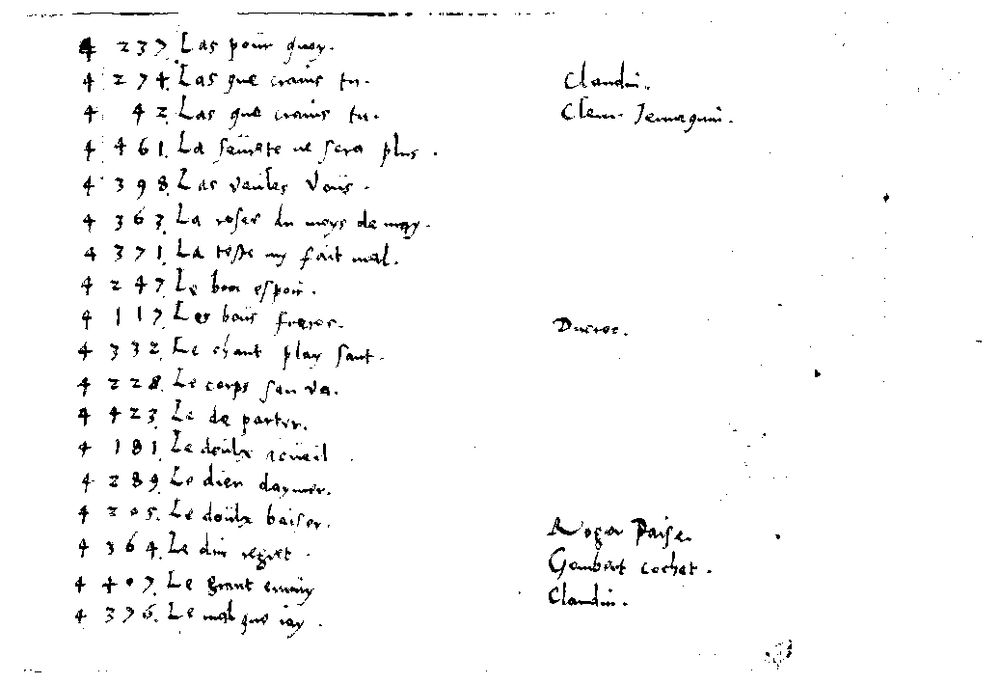 4 237. Las pour quoy.
4 274. Las que crains tu. Claudin.
4 42 Las que crains tu. Clem. Jennequin.
4 461. La seurete ne sera plus.
4 398. Las vaules vous.
4 363. La roser du moys de may.
4 371. La teste my fait mal.
4 247 Le bon espoir.
4 117. Les bons freres. Ducroc.
4 332. Le chant play sant.
4 228. Le corps san va.
4 423. Le de partir.
4 181. Le doulx acueil.
4 289. Le dieu daymer.
4 205. Le doulx baiser. Roger
4 364. Le dur regret. Gombert cochet.
4 407. Le grant ennuy Claudin.
4 376. Le mal que iay.